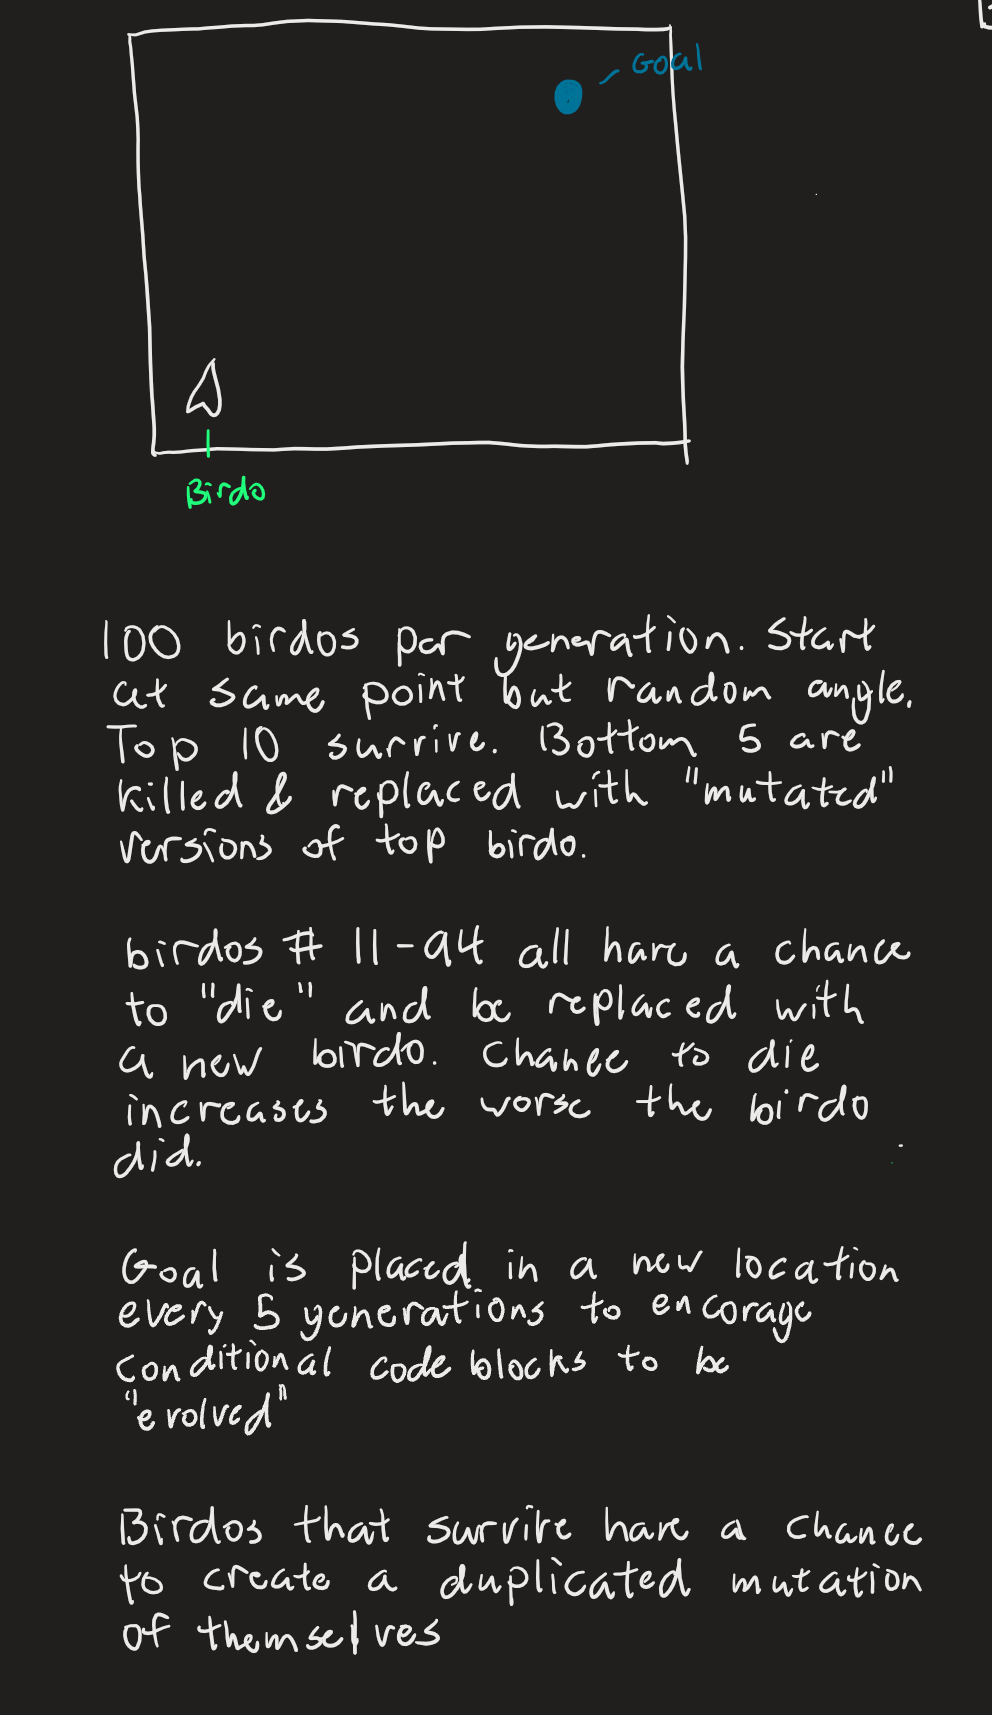 Goal
Birdo
100 birdos per generation. Start
at same point but random angle.
Top 10 survive. Bottom 5 are
killed & replaced with "mutated"
versions of top birdo.
birdos # 11-94 all have a chance
to "die" and be replaced with
a new birdo. Chance to die
increases the worse the birdo
did.
Goal is placed in a new location
every 5 generations to encorage
conditional code blocks to be
"evolved"
Birdos that survive have a chance
to create a duplicated mutation
of themselves